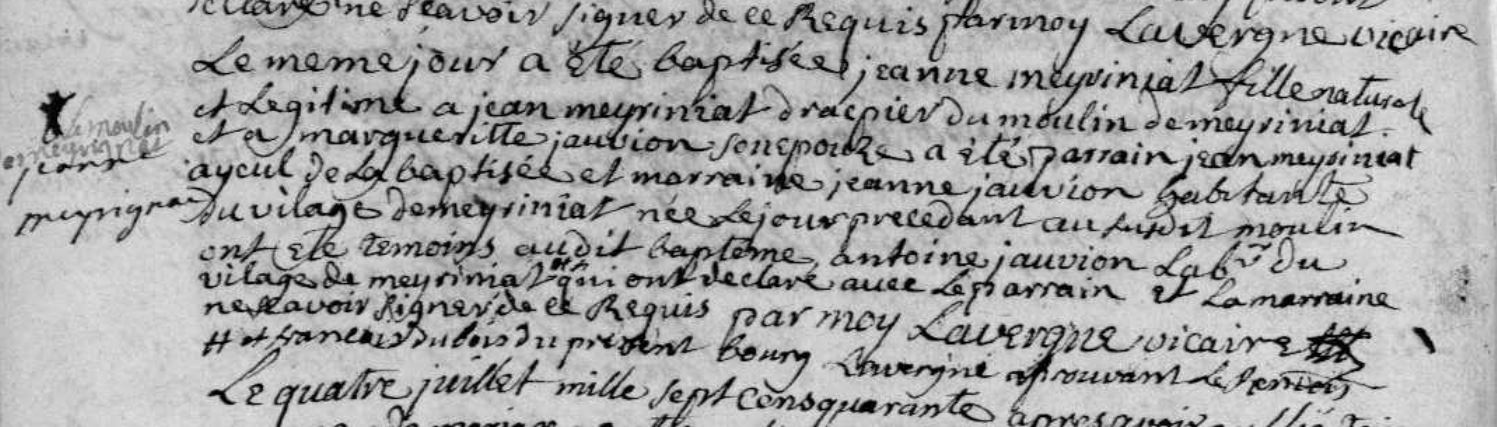 declaré ne scavoir signer de ce Requis par moy Lavergne vicaire
Le meme jour a été baptisée jeanne meyriniat fille naturale
et Legitime a jean meyriniat drapier du moulin de meyriniat.
et a margueritte jauvion son epouze a été parrain jean meyriniat
ayeul de La baptisée et marraine jeanne jauvion habitante
du vilage de meyriniat née Le jour precedant au susdit moulin
ont été temoins audit bapteme antoine jauvion Labr du
vilage de meyriniat # qui ont declaré avec Le parrain et La marraine
ne scavoir signer de ce Requis par moy Lavergne vicaire
# et francois dubois du present bourg Lavergne aprouvant Le
Le quatre juillet mille sept cens quarante apres avoir
du moulin
meyrignat
jeanne
meyrignac